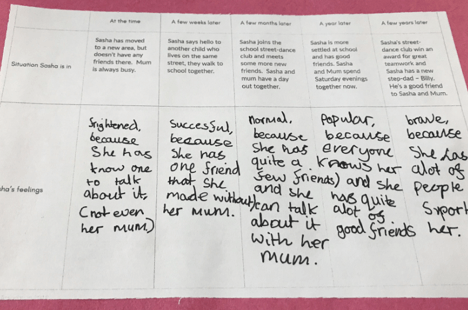 At the time
A few weeks later
A few months later
A year later
A few years later
Situation Sasha is in
Sasha has moved
to a new area, but
doesn't have any
friends there. Mum
is always busy.
Sasha says hello to
another child who
lives on the same
street, they walk to
school together.
Sasha joins the
school street-dance
club and meets
some more new
friends. Sasha and
mum have a day
out together.
Sasha is more
settled at school
and has good
friends. Sasha
and Mum spend
Saturday evenings
together now.
Sasha's street-
dance club win an
award for great
teamwork and
Sasha has a new
step-dad – Billy.
He's a good friend
to Sasha and Mum.
ha's feelings
frightened,
because
She has
know one
to talk
about it,
(not even
her mum)
Successful,
because
She has
one friend
that she
made without
her mum.
normal,
because
She has
quite a
few friends)
and she
can talk
about it
with her
mum.
Popular,
because
everyone
knows her
and she
has quite
alot of
good friends
brave,
because
She has
alot of
people
Sport
her.